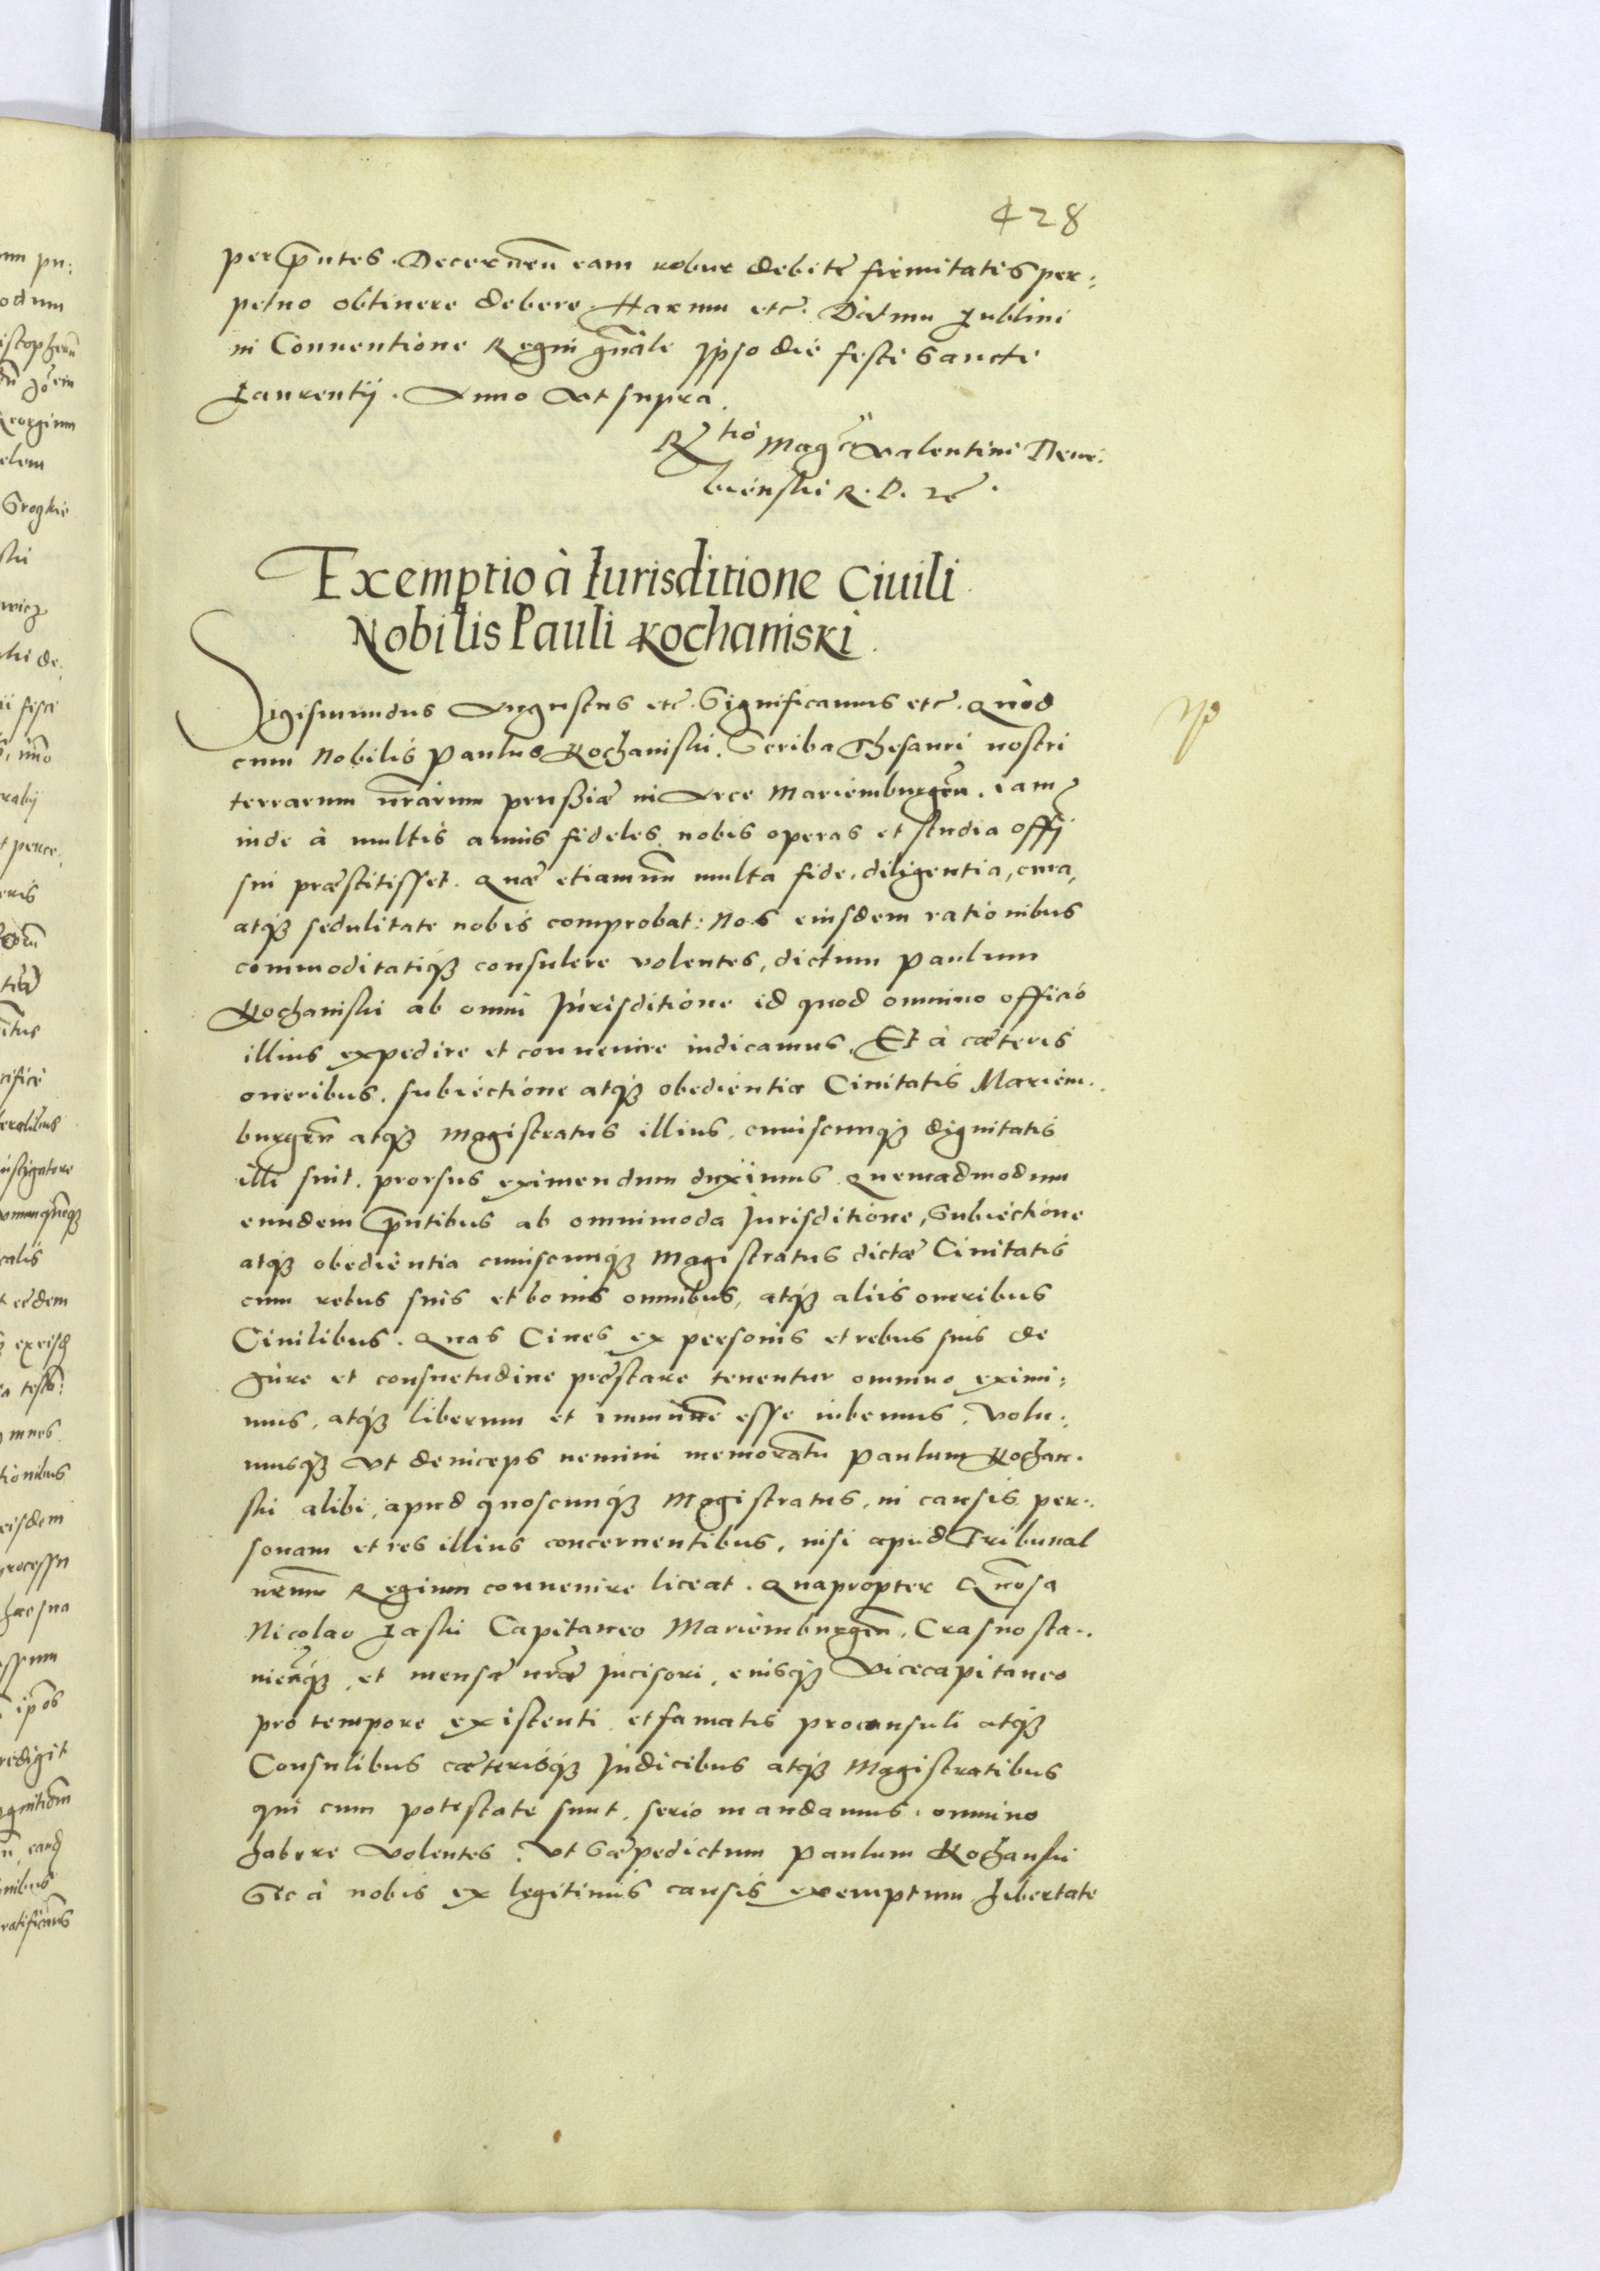 428
per p̄ntes. Decernen̄ eam robur debite firmitatis per:
petuo obtinere debere. Harum etc. Datum Lublini
in Conuentione Regni gn̄ale ipso die festi Sancti
Laurentij. Anno vt supra.
R̄tio Magci Valentini Dem:
bienski R. P. V. C.
Exemptio à Iurisditione Ciuili
Nobilis Pauli Kochanski.
Sigismundus Augustus etc. Significamus etc. Quòd
cum Nobilis Paulus Kochanski, Scriba Thesauri nostri
terrarum nr̄arum prußiæ in Arce Mariemburgen̄. iam
inde à multis annis fideles nobis operas et studia offij
sui præstitisset. Quæ etiamnū multa fide, diligentia, cura,
atq3 sedulitate nobis comprobat: Nos eiusdem rationibus
commoditatiq3 consulere volentes, dictum Paulum
Kochanski ab omni Iurisditione id quod omnino officio
illius expedire et conuenire iudicamus, Et à cæteris
oneribus, subiectione atq3 obedientia Ciuitatis Mariem:
burgen̄ atq3 Magistratus illius, cuiuscunq3 dignitatis
illi sint, prorsus eximendum duximus Quemadmodum
eundem p̄ntibus ab omnimoda Iurisditione, Subiectione
atq3 obedientia cuiuscunq3 Magistratus dictæ Ciuitatis
cum rebus suis et bonis omnibus, atq3 aliis oneribus
Ciuilibus. Quas Ciues ex personis et rebus suis de
Iure et consuetudine prestare tenentur omnino eximi:
mus, atq3 liberum et immunē esse iubemus. Volu:
musq3 vt deinceps nemini memoratū Paulum Kochan:
ski alibi, apud quoscunq3 Magistratus, in causis per:
sonam et res illius concernentibus, nisi apud Tribunal
nr̄um Regium conuenire liceat. Quapropter Gn̄oso
Nicolao Jaski Capitaneo Mariemburgen̄. Crasnosta:
uien̄q3, et mensæ nr̄æ Incisori, eiusq3 Vicecapitaneo
pro tempore existenti et famatis proconsuli atq3
Consulibus cæterisq3 Iudicibus atq3 Magistratibus
qui cum potestate sunt, serio mandamus. omnino
habere volentes. Vt Sæpedictum Paulum Kochanski
Sic à nobis ex legitimis causis exemptum libertate